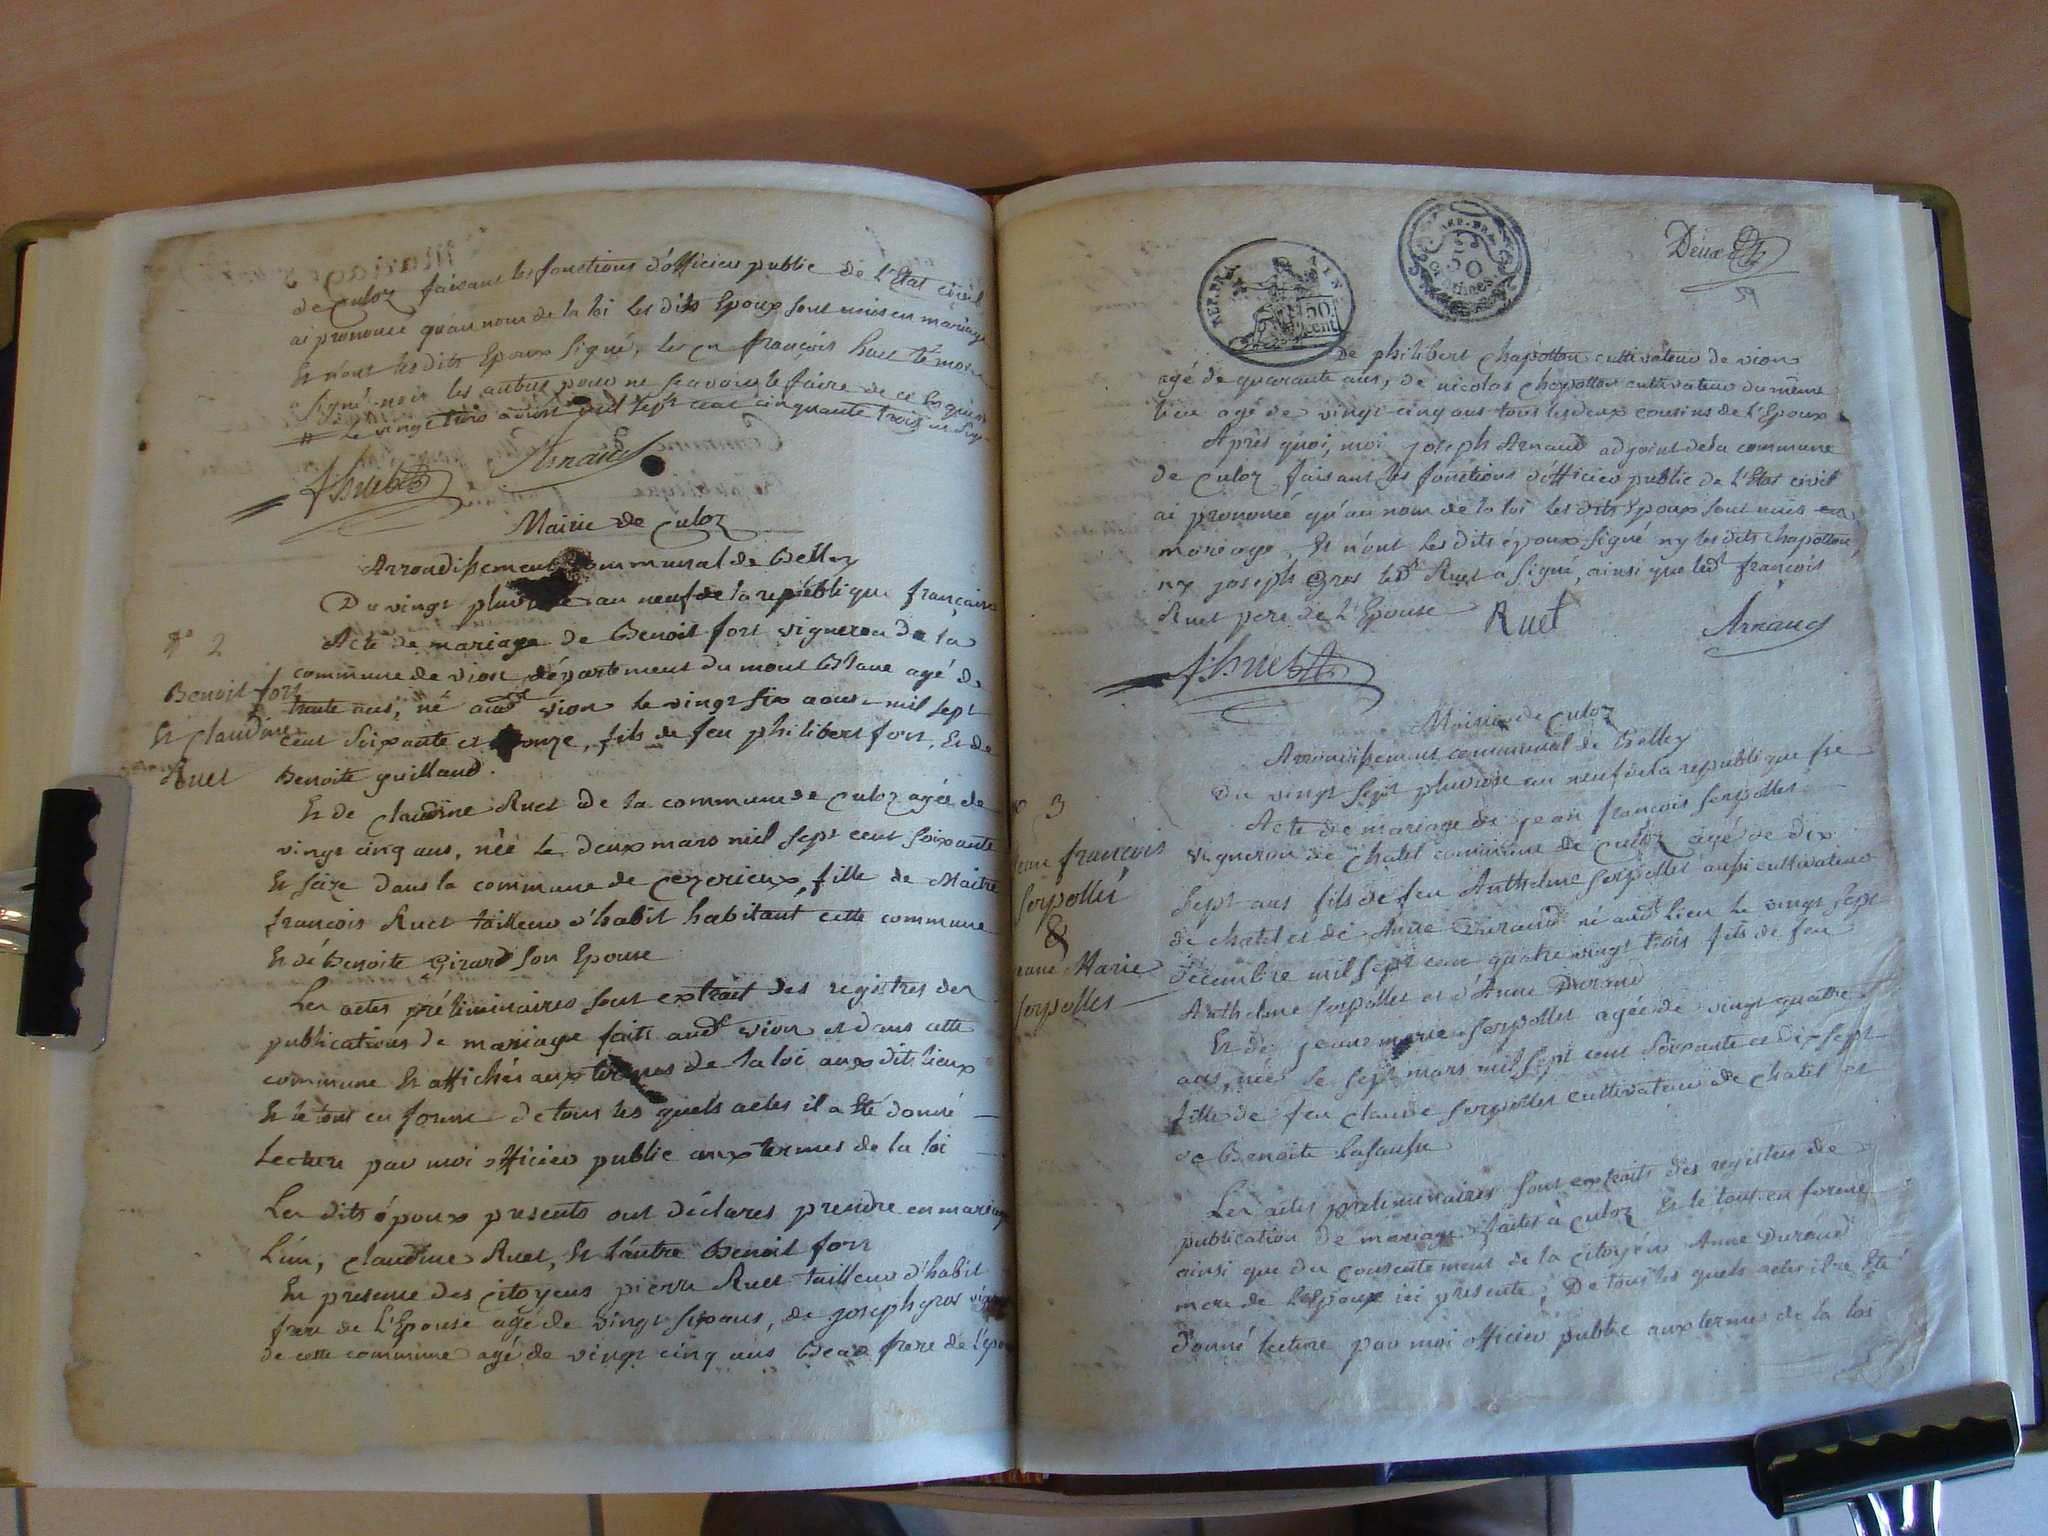 de Culoz faisant les fonctions d'officier public de l'Etat civil
ai prononcé qu'au nom de la loi les dits Epoux sont unis en mariage
Et n'ont les dits Epoux signé, le cn françois huet témoin
signé non les autres pour ne scavoir le faire de ce enquis
le vingt trois mil sept cent cinquante trois
fhuet
Arnaud
Mairie de Culoz
Arrondissement communal de Belley
Du vingt pluviose an neuf de la république française
Acte de mariage de Benoit fort vigneron de la
commune de vion, département du mont Blanc agé de
trente ans, né audt vion le vingt six aout mil sept
cent soixante et onze, fils de feu philibert fort, Et de
Benoite guilland.
N° 2
Benoit fort
Et Claudine
Ruet
Et de Claudine Ruet de la commune de Culoz agée de
vingt cinq ans, née le deux mars mil sept cent soixante
Et seize dans la commune de Ceyzerieux, fille de Maitre
françois Ruet tailleur d'habit habitant cette commune
Et de Benoite Girard son Epouse
Les actes préliminaires sont extrait des registres des
publications de mariage faits audt vion et dans cette
commune Et affichés aux termes de la loi aux dits lieux
Et le tout en forme de tous les quels actes il a Eté donné
Lecture par moi officier public aux termes de la loi
Les dits époux presents ont déclarés prendre en mariage
L'un, Claudine Ruet, Et l'autre Benoit fort
En presence des citoyens pierre Ruet tailleur d'habit
frere de L'Epouse agé de vingt six ans, de joseph gros
de cette commune agé de vingt cinq ans Beau frere de l'
REP. FRA
50
cent
REP. FRA
50
Deux
De philibert Chapotton cultivateur de vion
agé de quarante ans, de nicolas Chapotton cultivateur du même
lieu agé de vingt cinq ans tous les deux cousins de L'Epoux
Après quoi, moi joseph Arnaud adjoint de la commune
de Culoz faisant les fonctions d'officier public de L'Etat civil
ai prononcé qu'au nom de la loi les dits Epoux sont unis en
mariage, Et n'ont les dits époux signé ny les dits Chapotton,
ny joseph gros ledt Ruet a signé, ainsi que ledt françois
Ruet pere de L'Epouse
Ruet
Arnaud
fhuet
Mairie de Culoz
Arrondissement communal de Belley
Du vingt sept pluviose an neuf de la republique fse
Acte de mariage de jean françois serpollet
vigneron de Chatel commune de Culoz agé de dix
sept ans fils de feu Anthelme serpollet aussi cultivateur
de chatel et de Anne Durand né audt lieu le vingt sept
Décembre mil sept cent quatre vingt trois fils de feu
Anthelme serpollet et d'Anne Durand
3
françois
serpollet
&
Marie
serpollet
Et de jeanne marie serpollet agée de vingt quatre
ans, née le sept mars mil sept cent soixante et dix sept
fille de feu Claude serpollet cultivateur de Chatel et
de Benoite Lafausse
Les actes preliminaires sont extraits des registres de
publication de mariage faites à Culoz Et le tout en forme
ainsi que du consentement de la citoyene Anne Durand
mere de L'Epoux ici presente, De tous les quels actes il a Eté
donné lecture par moi officier public aux termes de la loi